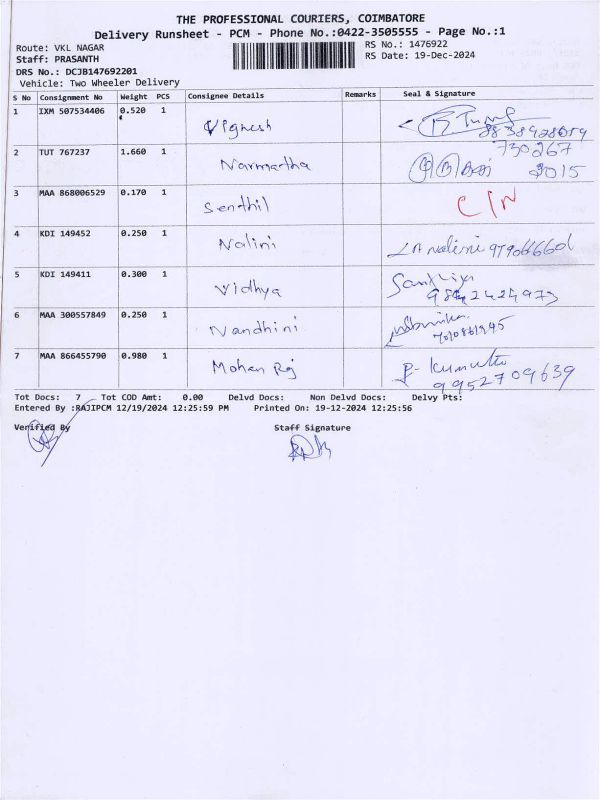 THE PROFESSIONAL COURIERS, COIMBATORE
Delivery Runsheet - PCM - Phone No.:0422-3505555 - Page No.:1
Route: VKL NAGAR
RS No.: 1476922
Staff: PRASANTH
RS Date: 19-Dec-2024
DRS No.: DCJB147692201
Vehicle: Two Wheeler Delivery
S No Consignment No Weight PCS Consignee Details Remarks Seal & Signature
1 IXM 507534406 0.520 1 Vignesh
2 TUT 767237 1.660 1 Narmatha
3 MAA 868006529 0.170 1 Sendhil
4 KDI 149452 0.250 1 Nalini
5 KDI 149411 0.300 1 Vidhya
6 MAA 300557849 0.250 1 Nandhini
7 MAA 866455790 0.980 1 Mohan Raj 9952709639
Tot Docs: 7 Tot COD Amt: 0.00 Delvd Docs: Non Delvd Docs: Delvy Pts:
Entered By :RAJIPCM 12/19/2024 12:25:59 PM Printed On: 19-12-2024 12:25:56
Verified By Staff Signature